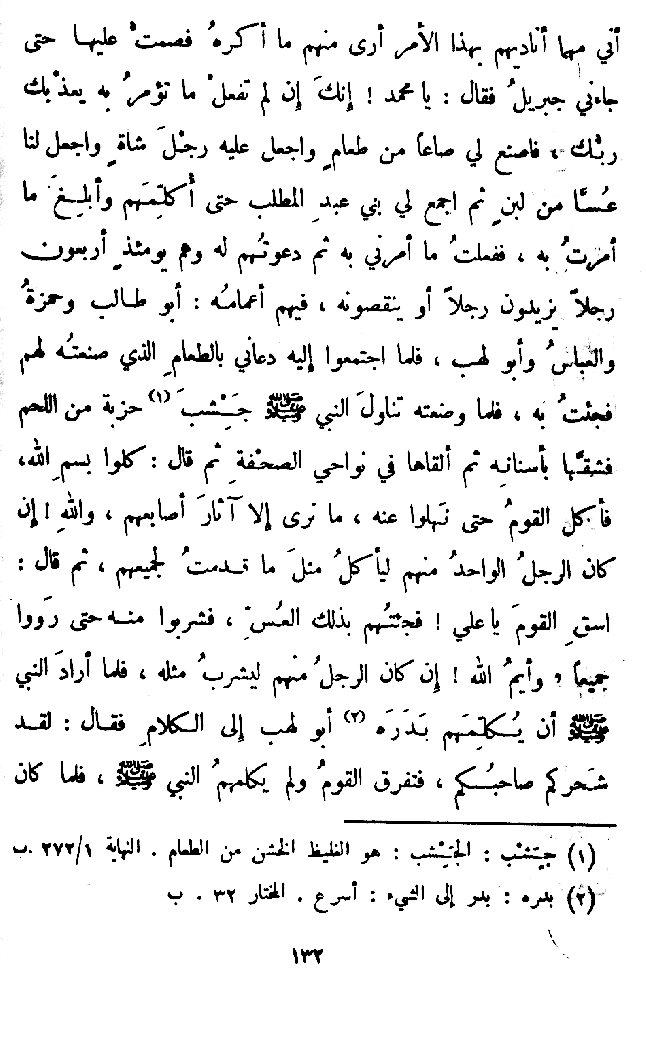 أني مهما أناديهم بهذا الأمر أرى منهم ما أكرهُ فصمتْ عليها حتى
جاءني جبريلُ فقال : يا محمد ! إنكَ إن لم تفعلْ ما تؤمرُ به يعذبك
ربُّك ، فاصنع لي صاعاً من طعامٍ واجعل عليه رجلَ شاةٍ واجعل لنا
عُسًّا من لبنٍ ثم اجمع لي بني عبدِ المطلب حتى أُكلِّمَهم وأبلِغَ ما
أمرتُ به ، ففعلتُ ما أمرني به ثم دعوتُهم له وهم يومئذٍ أربعون
رجلاً يزيدون رجلاً أو ينقصونه ، فيهم أعمامُه : أبو طالب وحمزةُ
والعباسُ وأبو لهب ، فلما اجتمعوا إليه دعاني بالطعامِ الذي صنعتُه لهم
فجئتُ به ، فلما وضعته تناولَ النبي ﷺ جَشِبَ (١) حزبة من اللحم
فشقَّها بأسنانِه ثم ألقاها في نواحي الصحْفةِ ثم قال : كلوا بسم الله،
فأكل القومُ حتى نَهِلوا عنه ، ما نرى إلا آثارَ أصابعهم ، واللهِ ! إن
كان الرجلُ الواحدُ منهم ليأكلُ مثلَ ما قدمتُ لجميعهم ، ثم قال :
اسقِ القومَ يا علي ! فجئتُهم بذلك العُسِّ ، فشربوا منه حتى رَووا
جميعاً ، وأيمُ الله ! إن كان الرجلُ منهم ليشربُ مثله ، فلما أرادَ النبي
ﷺ أن يُكلِّمَهم بَدَرَه (٢) أبو لهب إلى الكلامِ فقال : لقد
سَحركم صاحبُكم ، فتفرق القومُ ولم يكلمهمُ النبي ﷺ ، فلما كان
(١) جَشِبْ : الجَشِب : هو الغليظ الخشن من الطعام . النهاية ٢٧٢/١ .ب
(٢) بدره : بدر إلى الشيء : أسرع . المختار ٣٢ . ب
١٣٢